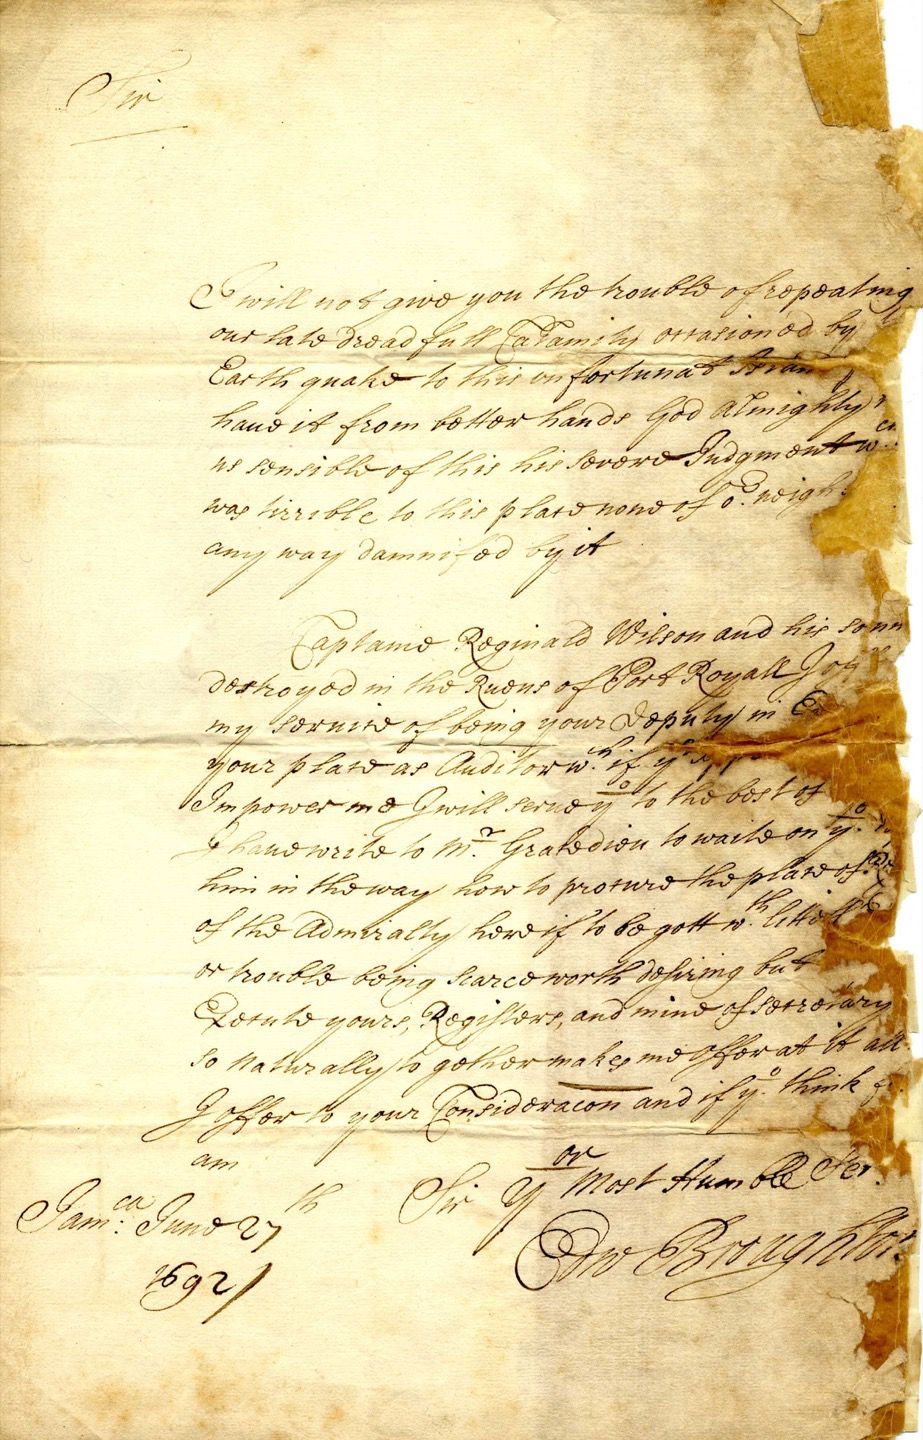 Sir
I will not give you the trouble of repeating
our late dreadfull Calamity occasioned by
Earth quake to this unfortunat
have it from better hands God Almighty
us sensible of this his severe Judgment wch
was tirrible to this place none of or. neigh
any way damnifed by it
Captaine Reginald Wilson and his sonn
destroyed in the Ruens of Port Royall I
my servise of being your Deputy in
your place as Auditor wch. if yo
Impower me I will serve yo to the best of
I have write to Mr. Gratedieu to waite on yo.
him in the way how to procure the place of
of the Admiralty here if to be gott wth. little
or trouble being scarce worth desiring but
Execute yours, Registers, and mine of Secretary
so naturally to gether makes me offer at it all
I offer to your Consideracon and if yo. think
am
Sir Yor Most Humble Ser
Edw Broughton
Jamca: June 27th
1692/